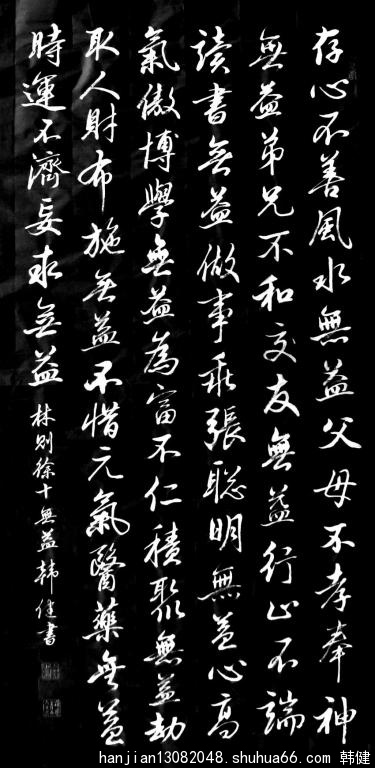 存心不善風水無益父母不孝奉神
無益弟兄不和交友無益行止不端
讀書無益做事乖張聰明無益心高
氣傲博學無益為富不仁積聚無益劫
取人財布施無益不惜元氣醫藥無益
時運不濟妄求無益
林则徐十無益韩健書
hanjian13082048.shuhua66.com 韩健